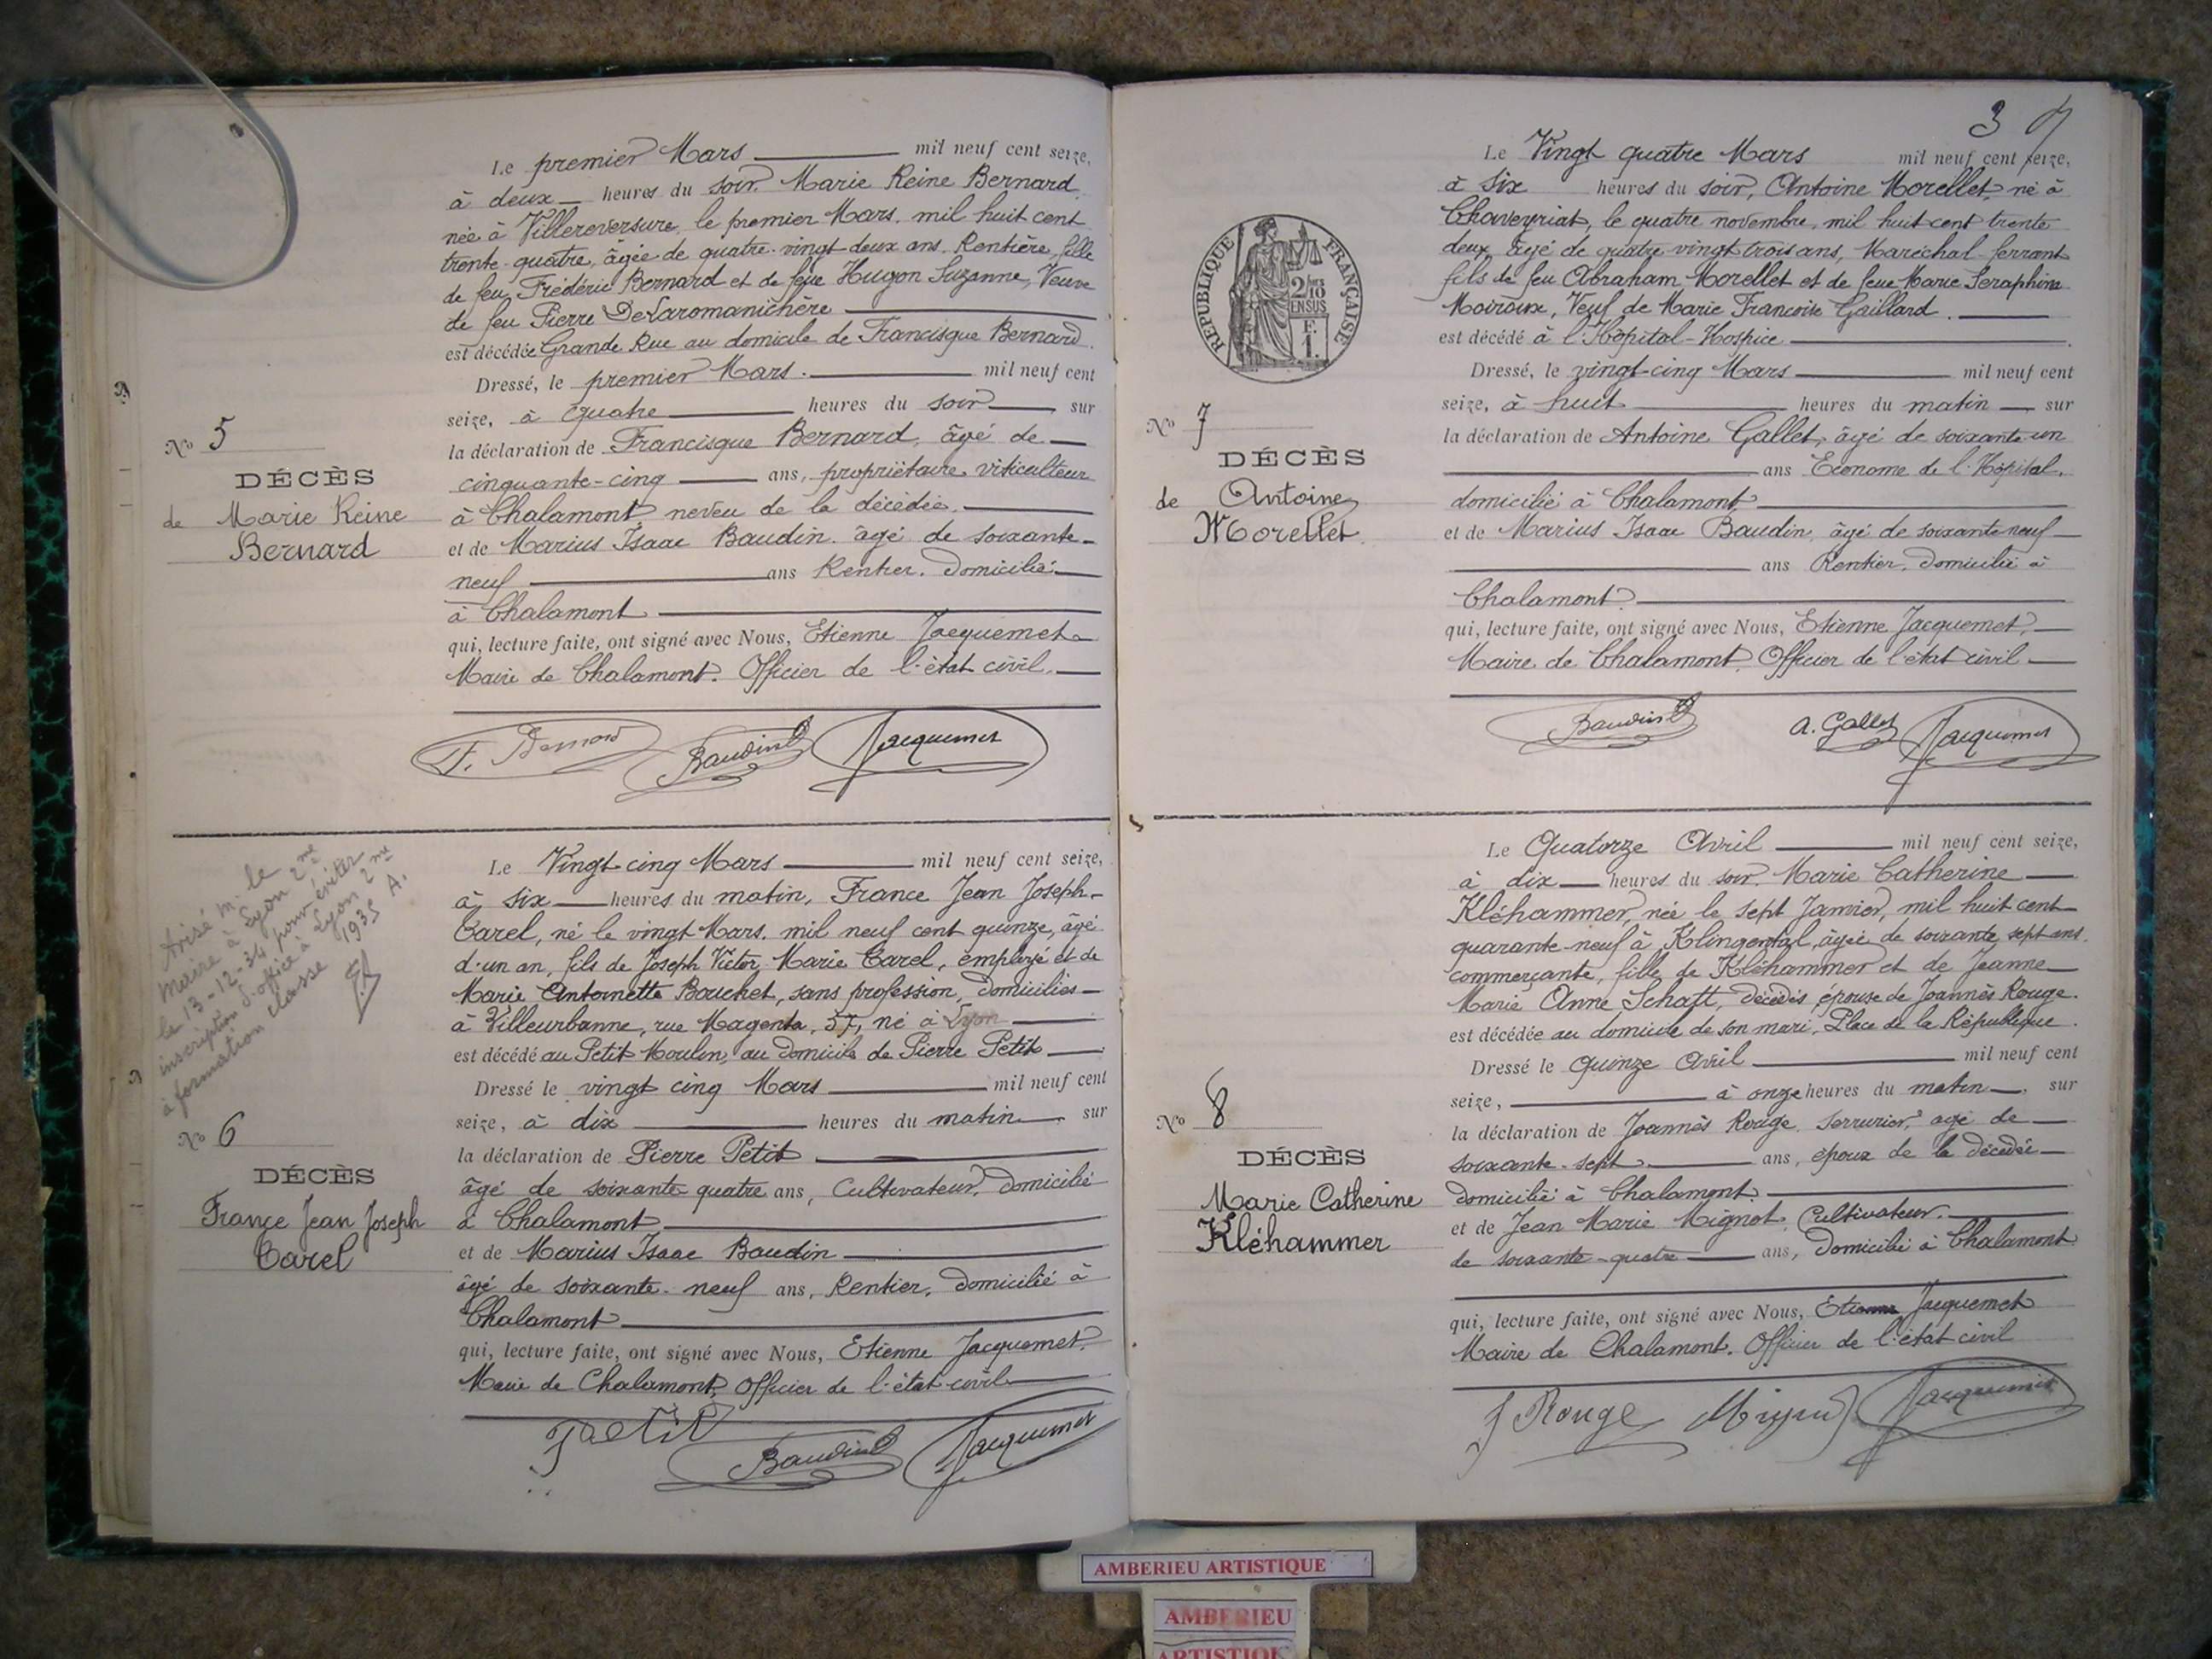 Le premier Mars mil neuf cent seize,
à deux heures du soir. Marie Reine Bernard
née à Villereversure, le premier Mars. mil huit cent
trente-quatre, âgée de quatre-vingt-deux ans. Rentière, fille
de feu Frédéric Bernard et de feue Hugon Suzanne, Veuve
de feu Pierre DeLaromanichère
est décédée Grande Rue au domicile de Francisque Bernard.
Dressé, le premier Mars. mil neuf cent
seize, à quatre heures du soir sur
la déclaration de Francisque Bernard, âgé de
cinquante-cinq ans, propriétaire viticulteur
à Chalamont neveu de la décédée.
et de Marius Isaac Baudin. âgé de soixante-
neuf ans Rentier. Domicilié
à Chalamont
qui, lecture faite, ont signé avec Nous, Etienne Jacquemet
Maire de Chalamont. Officier de l'état civil.
No 5
DÉCÈS
de Marie Reine
Bernard
F. Bernard Baudin Jacquemet
Le Vingt cinq Mars mil neuf cent seize,
à six heures du matin, France Jean Joseph
Carel, né le vingt Mars. mil neuf cent quinze, âgé
d'un an, fils de Joseph Victor Marie Carel, employé et de
Marie Antoinette Bouchet, sans profession, domiciliés
à Villeurbanne, rue Magenta, 57, né à Lyon
est décédé au Petit Moulin, au domicile de Pierre Petit
Dressé le vingt cinq Mars mil neuf cent
seize, à dix heures du matin sur
la déclaration de Pierre Petit
âgé de soixante-quatre ans, Cultivateur, domicilié
à Chalamont
et de Marius Isaac Baudin
âgé de soixante-neuf ans, Rentier, domicilié à
Chalamont
qui, lecture faite, ont signé avec Nous, Etienne Jacquemet,
Maire de Chalamont, Officier de l'état-civil
Avisé Mr le
Maire à Lyon 2me
le 13-12-34 pour éviter
inscription d'office à Lyon 2me
à formation classe 1935 A.
No 6
DÉCÈS
France Jean Joseph
Carel
Petit Baudin Jacquemet
3
Le Vingt quatre Mars mil neuf cent seize,
à six heures du soir, Antoine Morellet, né à
Chaveyriat, le quatre novembre, mil huit cent trente
deux, âgé de quatre vingt trois ans, Maréchal-ferrant
fils de feu Abraham Morellet et de feue Marie Seraphine
Moiroux, Veuf de Marie Francoise Gaillard.
est décédé à l'Hôpital-Hospice
Dressé, le vingt-cinq Mars mil neuf cent
seize, à huit heures du matin sur
la déclaration de Antoine Gallet, âgé de soixante-un
ans Econome de l'Hôpital,
domicilié à Chalamont
et de Marius Isaac Baudin, âgé de soixante neuf
ans Rentier, domicilié à
Chalamont
qui, lecture faite, ont signé avec Nous, Etienne Jacquemet,
Maire de Chalamont. Officier de l'état civil
RÉPUBLIQUE FRANÇAISE
2/10
EN SUS
F.
1.
No 7
DÉCÈS
de Antoine
Morellet
Baudin A. Gallet Jacquemet
Le Quatorze Avril mil neuf cent seize,
à dix heures du soir. Marie Catherine
Kléhammer, née le sept Janvier, mil huit cent
quarante-neuf à Klingental, âgée de soixante sept ans.
commerçante, fille de Kléhammer et de Jeanne
Marie Anne Schaft, décédés, épouse de Joannès Rouge.
est décédée au domicile de son mari, Place de la République.
Dressé le Quinze Avril mil neuf cent
seize, à onze heures du matin, sur
la déclaration de Joannès Rouge, Serrurier, âgé de
soixante-sept ans, époux de la décédée
domicilié à Chalamont.
et de Jean Marie Mignot, Cultivateur.
de soixante-quatre ans, domicilié à Chalamont
qui, lecture faite, ont signé avec Nous, Etienne Jacquemet
Maire de Chalamont. Officier de l'état civil
No 8
DÉCÈS
Marie Catherine
Kléhammer
J Rouge Mignot Jacquemet
AMBERIEU ARTISTIQUE
AMBERIEU
ARTISTIQUE